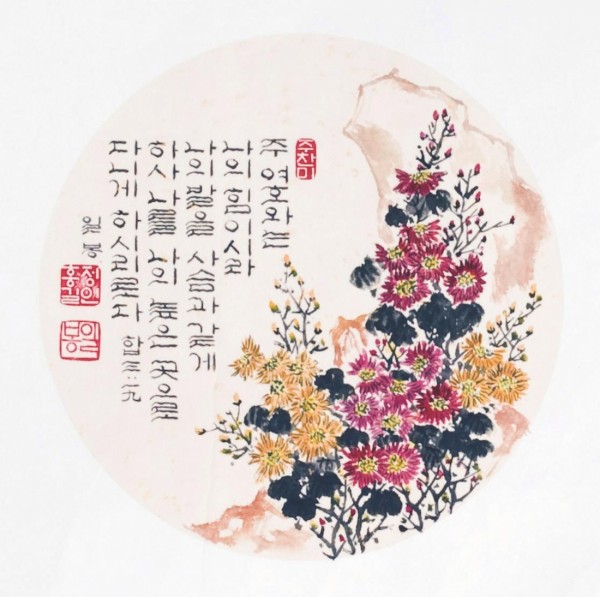 주찬미
주 여호와는
나의 힘이시라
나의 발을 사슴과 같게
하사 나를 나의 높은 곳으로
다니게 하시리로다 합三:一九
일봉
일봉